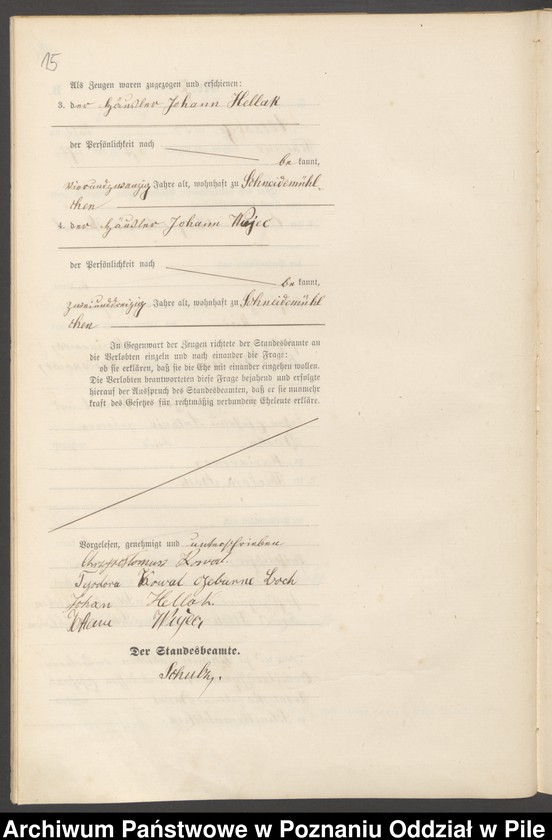 15
Als Zeugen waren zugezogen und erschienen:
3. der Häusler Johann Hellak
der Persönlichkeit nach
be kannt,
vierundzwanzig Jahre alt, wohnhaft zu Schneidemühl-
chen
4. der Häusler Johann Wojec
der Persönlichkeit nach
be kannt,
zweiunddreizig Jahre alt, wohnhaft zu Schneidemühl
chen
In Gegenwart der Zeugen richtete der Standesbeamte an
die Verlobten einzeln und nach einander die Frage:
ob sie erklären, daß sie die Ehe mit einander eingehen wollen.
Die Verlobten beantworteten diese Frage bejahend und erfolgte
hierauf der Ausspruch des Standesbeamten, daß er sie nunmehr
kraft des Gesetzes für rechtmäßig verbundene Eheleute erkläre.
Vorgelesen, genehmigt und unterschrieben
Kowal.
Teodora Kowal geburne Loch
Johan Hellak.
Der Standesbeamte.
Schulz.
Archiwum Państwowe w Poznaniu Oddział w Pile